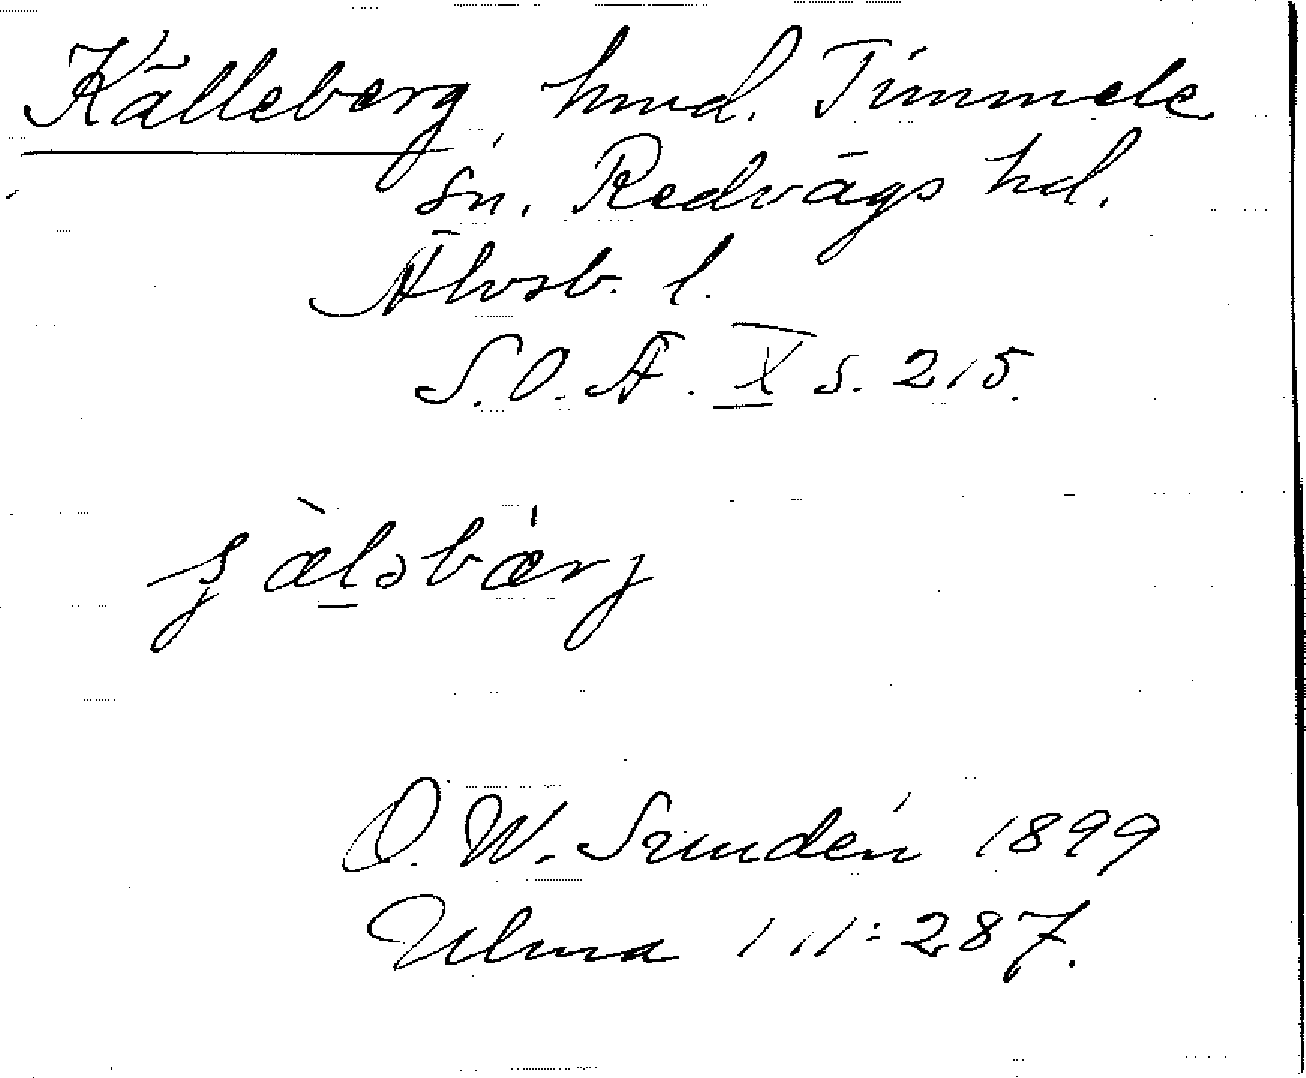 Källeberg, hmd. Timmele
sn. Redvägs hd.
Älvsb. l.
S.O.Ä. X s. 215.
O. W. Sundén 1899
Ulma 111:287.